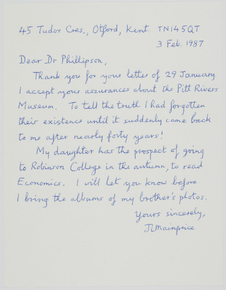 45 Tudor Cres., Otford, Kent TN14 5QT
3 Feb. 1987
Dear Dr Phillipson,
Thank you for your letter of 29 January
I accept your assurances about the Pitt Rivers
Museum. To tell the truth I had forgotten
their existence until it suddenly came back
to me after nearly forty years!
My daughter has the prospect of going
to Robinson College in the autumn, to read
Economics. I will let you know before
I bring the albums of my brother's photos.
Yours sincerely,